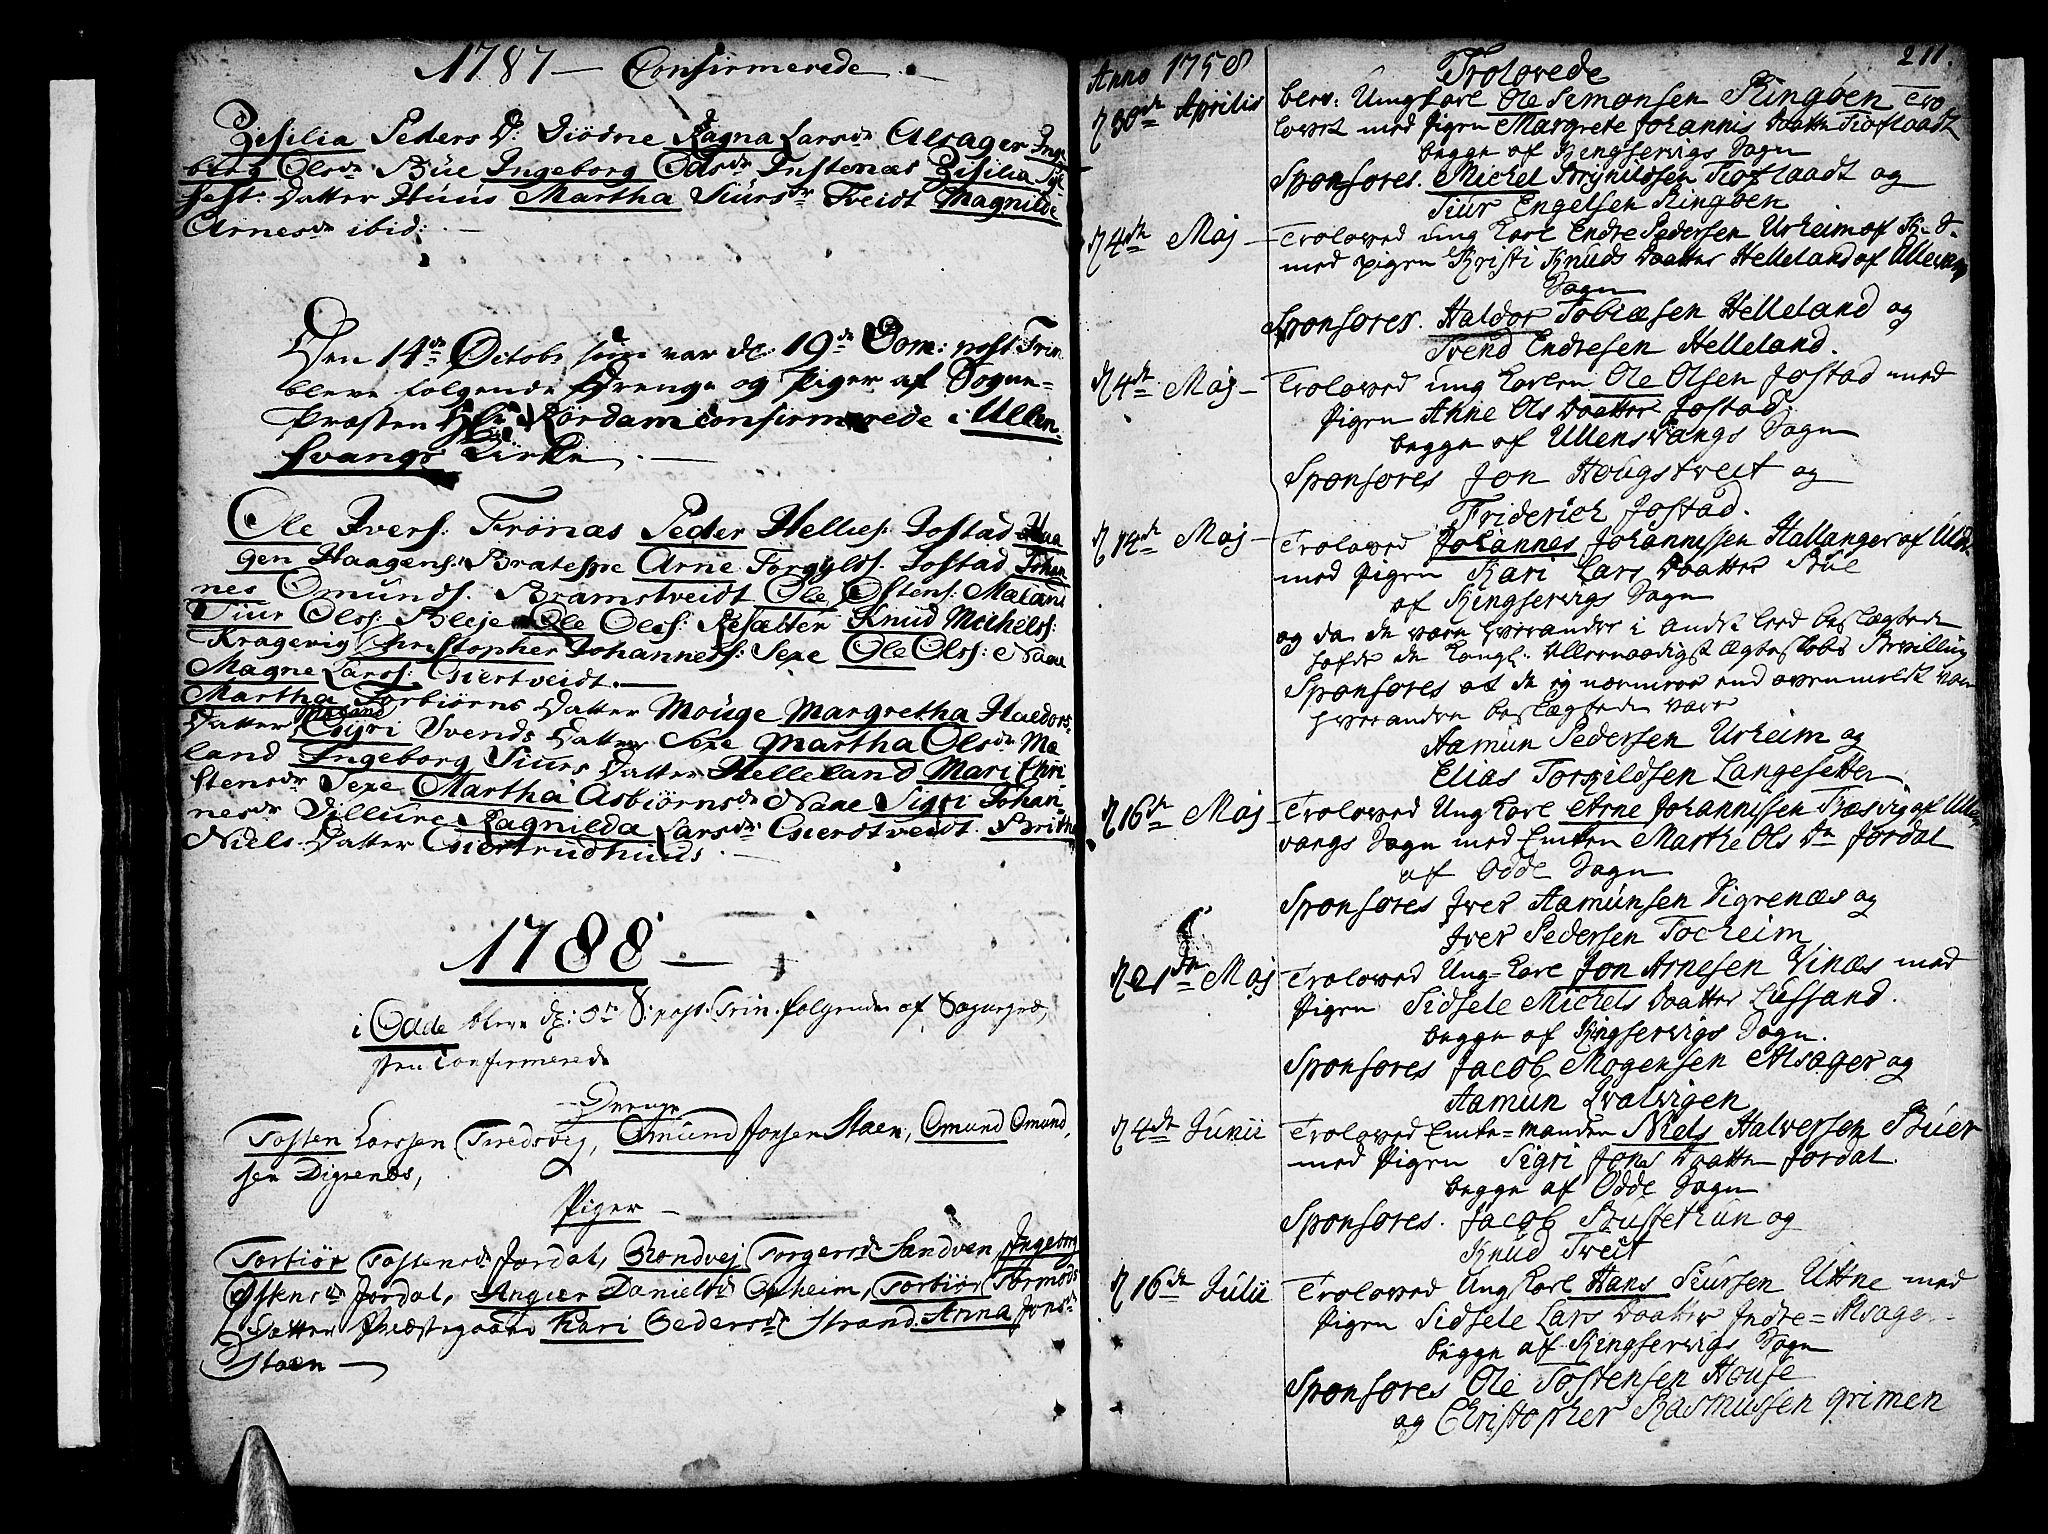 1787 — Confirmerede —
Zesilia Peders D: Diödne Ragna Larsdr Alsager Inge
berg Olsdr Büe Ingeborg Odsdr Instenæs Zesilia
fest: Datter Huus Martha Siursdr Tveidt Magnilde
Arnesdr ibid: —
Den 14de Octobr som var de 19de Dom: post Trin
bleve folgende Drenge og Piger af Sogne-
Præsten Hr: Rördam confirmerede i Ullen-
svangs Kirke —
Ole Ivers: Frönæs Peder Helljes: Jostad Haa
gen Haagens: Bratespe Arne Torgyls: Jostad Johan
nes Omunds. Bramstveidt Ole Ostens: Mæland
Siur Olss: Bleje Ole Olss: Resæter Knud Michels:
Kragevig Christopher Johanness: Sexe Ole Olss: Naae
Magne Larss: Giertveidt. —
Martha Torbiörns Datter Mouge Margretha Haldors
Datter Mæland Gyri Svends Datter Sexe Martha Olsdr Mæ
land Ingeborg Siurs Datter Helleland Mari Chri
stensdr Sexe Martha Asbiörnsdr Naae Sigri Johan-
nesdr Ragnilda Larsdr Gierdtveidt. Britha
Niels Datter Giertrudhuus. —
1788 —
i Odde bleve S: post. Trin. folgende af Sognepræ
sten Confirmerede
Drenge
Tosten Larssen Tredsvig, Omund Jonsen Staen, Omund Omund,
sen Digrenæs,
Piger —
Torbiör Tostensdr Jordal, Rondvej Torgersdr Sandven, Ingeborg
Ostensdr Jordal, Angier Danielsdr Opheim, Torbiör Tormods
Datter Præstegaard Kari Pedersdr Strand Anna Jonsdr
Staen —
211.
Anno 1758 Trolovede
d 30de Aprilis blev: Ung Karl Ole Simonsen Ringöen Tro
lovet med Pigen Margrete Johannis Daatter Tioflaadt
begge af Kingservigs Sogn
Sponsores. Michel Brynildsen Tioflaadt og
Siur Engelsen Ringöen
d 4de Maj — Troloved ung Karl Endre Pedersen Urheim af K. S.
med pigen Kristi Knuds Daatter Helleland af Ullensvang
Sogn
Sponsores. Haldor Tobiæsen Helleland og
Svend Endresen Helleland.
d 4de Maj — Troloved ung Karlen Ole Olsen Jostad med
Pigen Anne Ols Daatter Jostad
begge af Ullensvangs Sogn
Sponsores Jon Hougstveit og
Friderich Jostad.
d 14de Maj — Troloved Johannes Johannessen Hallanger af Ulv:
med Pigen Kari Lars Daatter Büe
af Kingservigs Sogn
og da de vare hverandre i andet leed beslægtede
hafde de Kongl: Allernaadigst Ægteskabs Bevilling
Sponsores at de ej nærmere end ovenmeldt vare
hverandre beslægtede vare
Aamun Pedersen Urheim og
Elias Torkildsen Langesetter
d 16de Maj — Troloved Ung Karl Arne Johannissen Træsvig af Ullens
vangs Sogn med Enken Marthe Ols Dr Jordal
af Odde Sogn
Sponsores Iver Aamunsen Digrenæs og
Iver Pedersen Tocheim
d 21de Maj Troloved Ung-Karl Jon Arnesen Vinæs med
Pigen Sidsele Michels Daatter Lussand.
begge af Kingservigs Sogn.
Sponsores Jacob Mogensen Alsager og
Aamun Qvalvigen
d 4de Junii Troloved Enke-manden Niels Halversen Büer
med Pigen Sigri Jons Daatter Jordal.
begge af Odde Sogn
Sponsores. Jacob Bustethun og
Knud Treit
d 16de Julii Troloved Ung Karl Hans Siursen Uttne med
Pigen Sidsele Lars Daatter Indre = Alsager
begge af Kingservigs Sogn
Sponsores Ole Tostensen House
og Christopher Rasmussen grimen